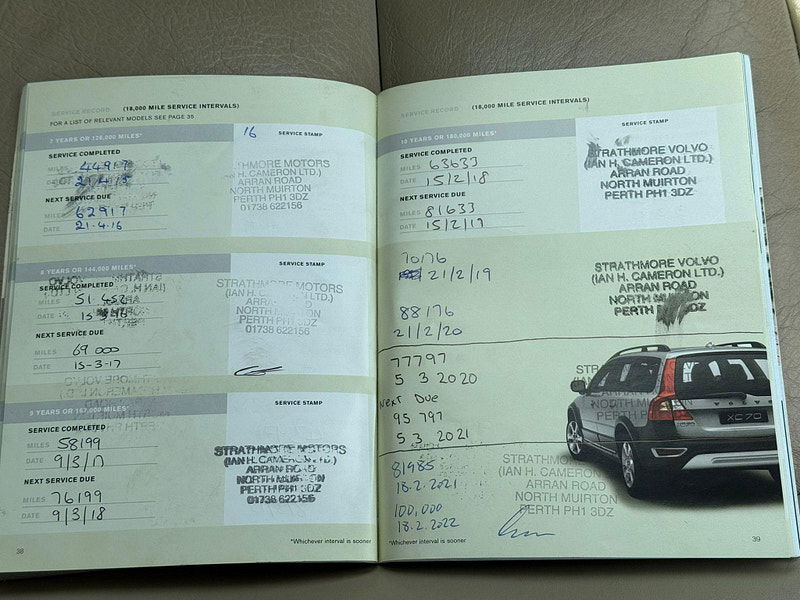 SERVICE RECORD (18,000 MILE SERVICE INTERVALS)
FOR A LIST OF RELEVANT MODELS SEE PAGE 35
7 YEARS OR 126,000 MILES*
16
SERVICE STAMP
SERVICE COMPLETED
MILES 44917
DATE
NEXT SERVICE DUE
MILES 62917
DATE 21.4.16
STRATHMORE MOTORS
(IAN H. CAMERON LTD.)
ARRAN ROAD
NORTH MUIRTON
PERTH PH1 3DZ
01738 622156
8 YEARS OR 144,000 MILES*
SERVICE STAMP
SERVICE COMPLETED
MILES 51 452
DATE 15
NEXT SERVICE DUE
MILES 69 000
DATE 15-3-17
STRATHMORE MOTORS
(IAN H. CAMERON LTD.)
ARRAN ROAD
NORTH MUIRTON
PERTH PH1 3DZ
01738 622156
9 YEARS OR 162,000 MILES*
SERVICE STAMP
SERVICE COMPLETED
MILES 58199
DATE 9/3/17
NEXT SERVICE DUE
MILES 76199
DATE 9/3/18
STRATHMORE MOTORS
(IAN H. CAMERON LTD.)
ARRAN ROAD
NORTH MUIRTON
PERTH PH1 3DZ
01738 622156
*Whichever interval is sooner
38
SERVICE RECORD (18,000 MILE SERVICE INTERVALS)
10 YEARS OR 180,000 MILES*
SERVICE STAMP
SERVICE COMPLETED
MILES 63633
DATE 15/2/18
NEXT SERVICE DUE
MILES 81633
DATE 15/2/19
STRATHMORE VOLVO
(IAN H. CAMERON LTD.)
ARRAN ROAD
NORTH MUIRTON
PERTH PH1 3DZ
70176
21/2/19
88176
21/2/20
STRATHMORE VOLVO
(IAN H. CAMERON LTD.)
ARRAN ROAD
NORTH MUIRTON
PERTH PH1 3DZ
77797
5 3 2020
Next Due
95 797
5 3 2021
XC70
81985
18.2.2021
100,000
18.2.2022
STRATHMORE VOLVO
(IAN H. CAMERON LTD.)
ARRAN ROAD
NORTH MUIRTON
PERTH PH1 3DZ
*Whichever interval is sooner
39